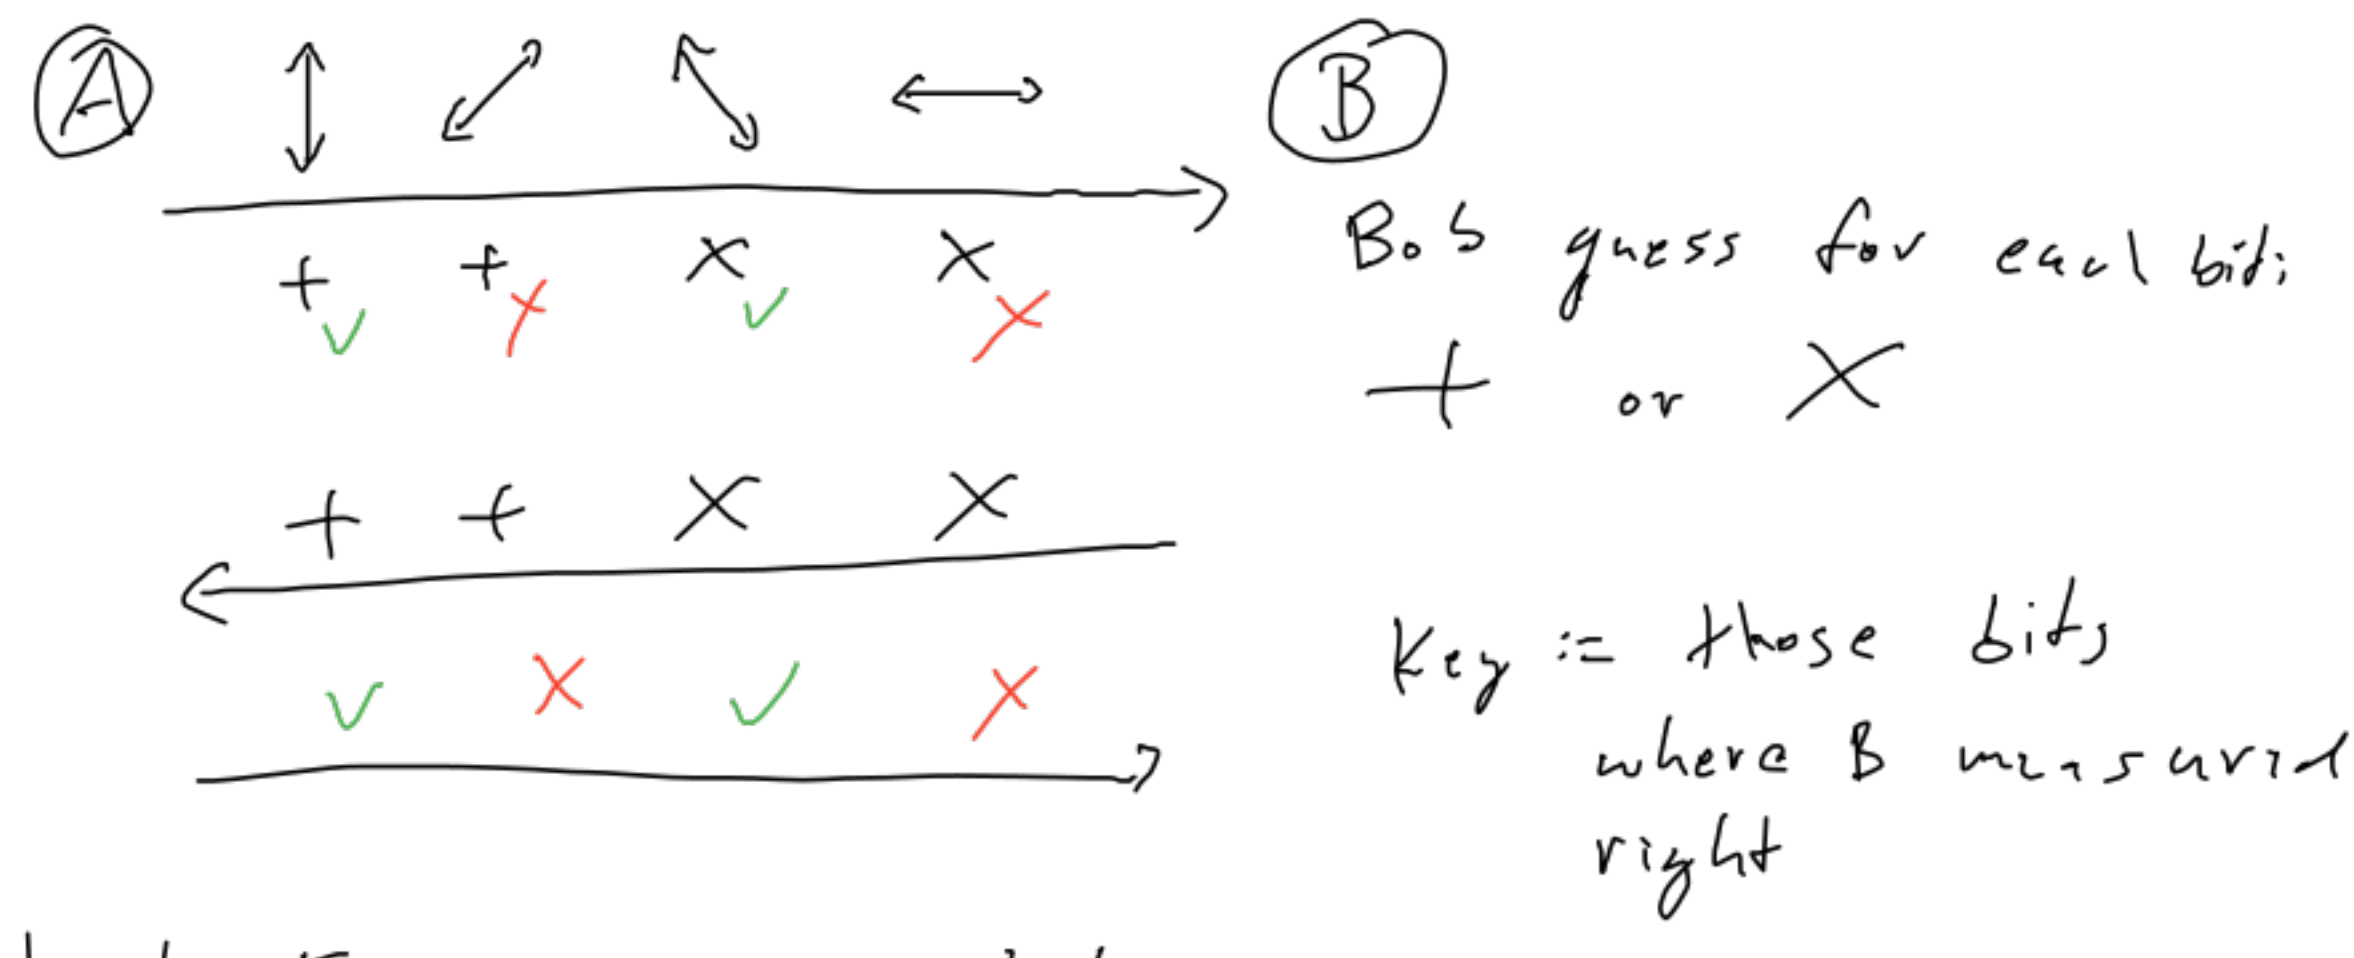 A B
+ + × ×
Bob guess for each bit:
+ or ×
+ + × ×
Key := those bits
where B measured
right